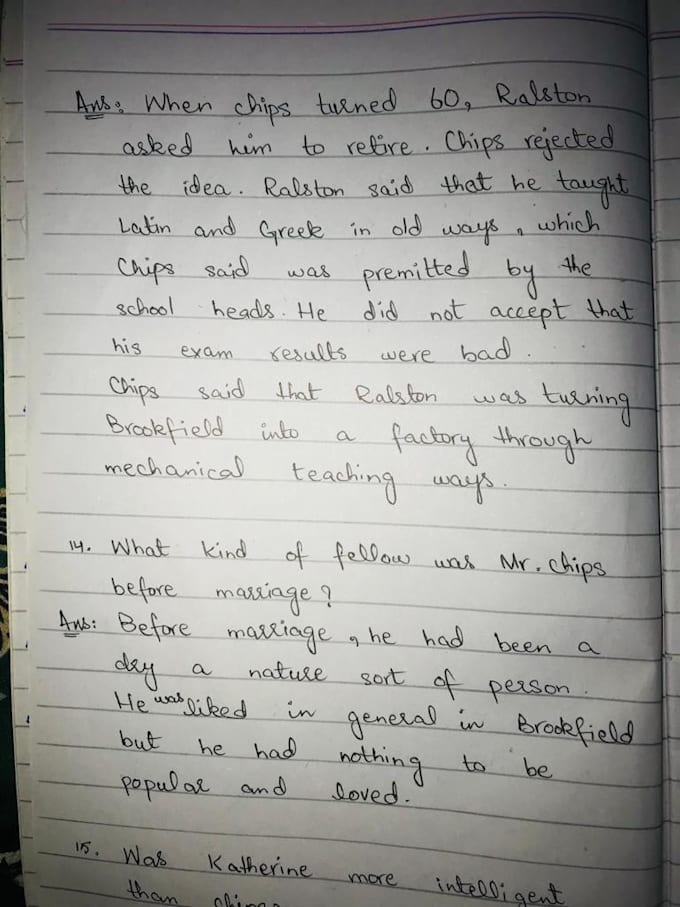 Ans: When Chips turned 60, Ralston
asked him to retire. Chips rejected
the idea. Ralston said that he taught
Latin and Greek in old ways, which
Chips said was premitted by the
school heads. He did not accept that
his exam results were bad.
Chips said that Ralston was turning
Brookfield into a factory through
mechanical teaching ways.
14. What kind of fellow was Mr. Chips
before marriage?
Ans: Before marriage, he had been a
dry a nature sort of person.
He was liked in general in Brookfield
but he had nothing to be
popular and loved.
15. Was Katherine more intelligent
than chips